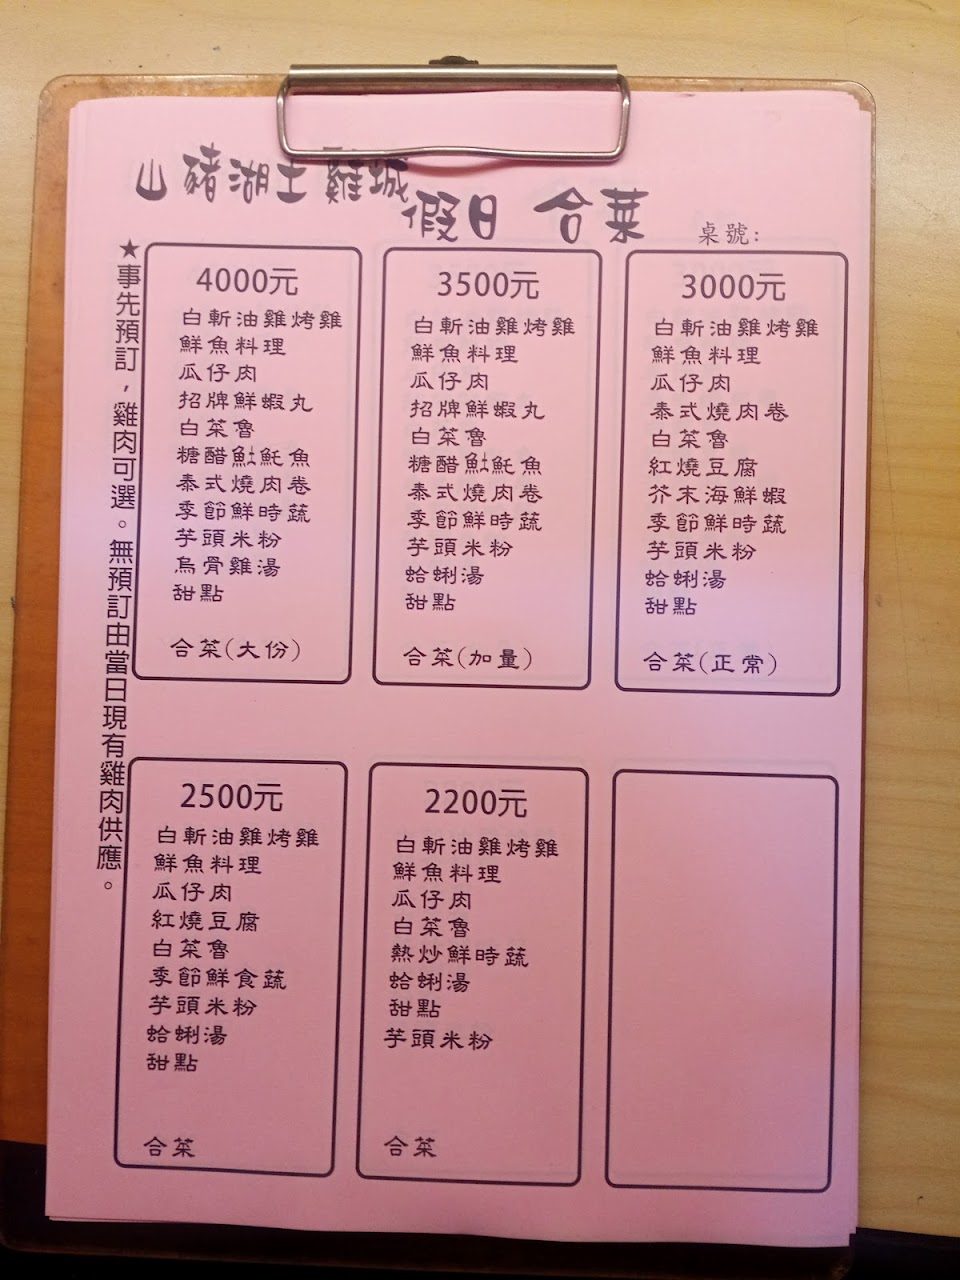 山豬湖土雞城
假日 合菜
桌號:
★事先預訂，雞肉可選。無預訂由當日現有雞肉供應。
4000元
白斬油雞烤雞
鮮魚料理
瓜仔肉
招牌鮮蝦丸
白菜魯
糖醋魚土魠魚
泰式燒肉卷
季節鮮時蔬
芋頭米粉
烏骨雞湯
甜點
合菜(大份)
3500元
白斬油雞烤雞
鮮魚料理
瓜仔肉
招牌鮮蝦丸
白菜魯
糖醋魚土魠魚
泰式燒肉卷
季節鮮時蔬
芋頭米粉
蛤蜊湯
甜點
合菜(加量)
3000元
白斬油雞烤雞
鮮魚料理
瓜仔肉
泰式燒肉卷
白菜魯
紅燒豆腐
芥末海鮮蝦
季節鮮時蔬
芋頭米粉
蛤蜊湯
甜點
合菜(正常)
2500元
白斬油雞烤雞
鮮魚料理
瓜仔肉
紅燒豆腐
白菜魯
季節鮮食蔬
芋頭米粉
蛤蜊湯
甜點
合菜
2200元
白斬油雞烤雞
鮮魚料理
瓜仔肉
白菜魯
熱炒鮮時蔬
蛤蜊湯
甜點
芋頭米粉
合菜